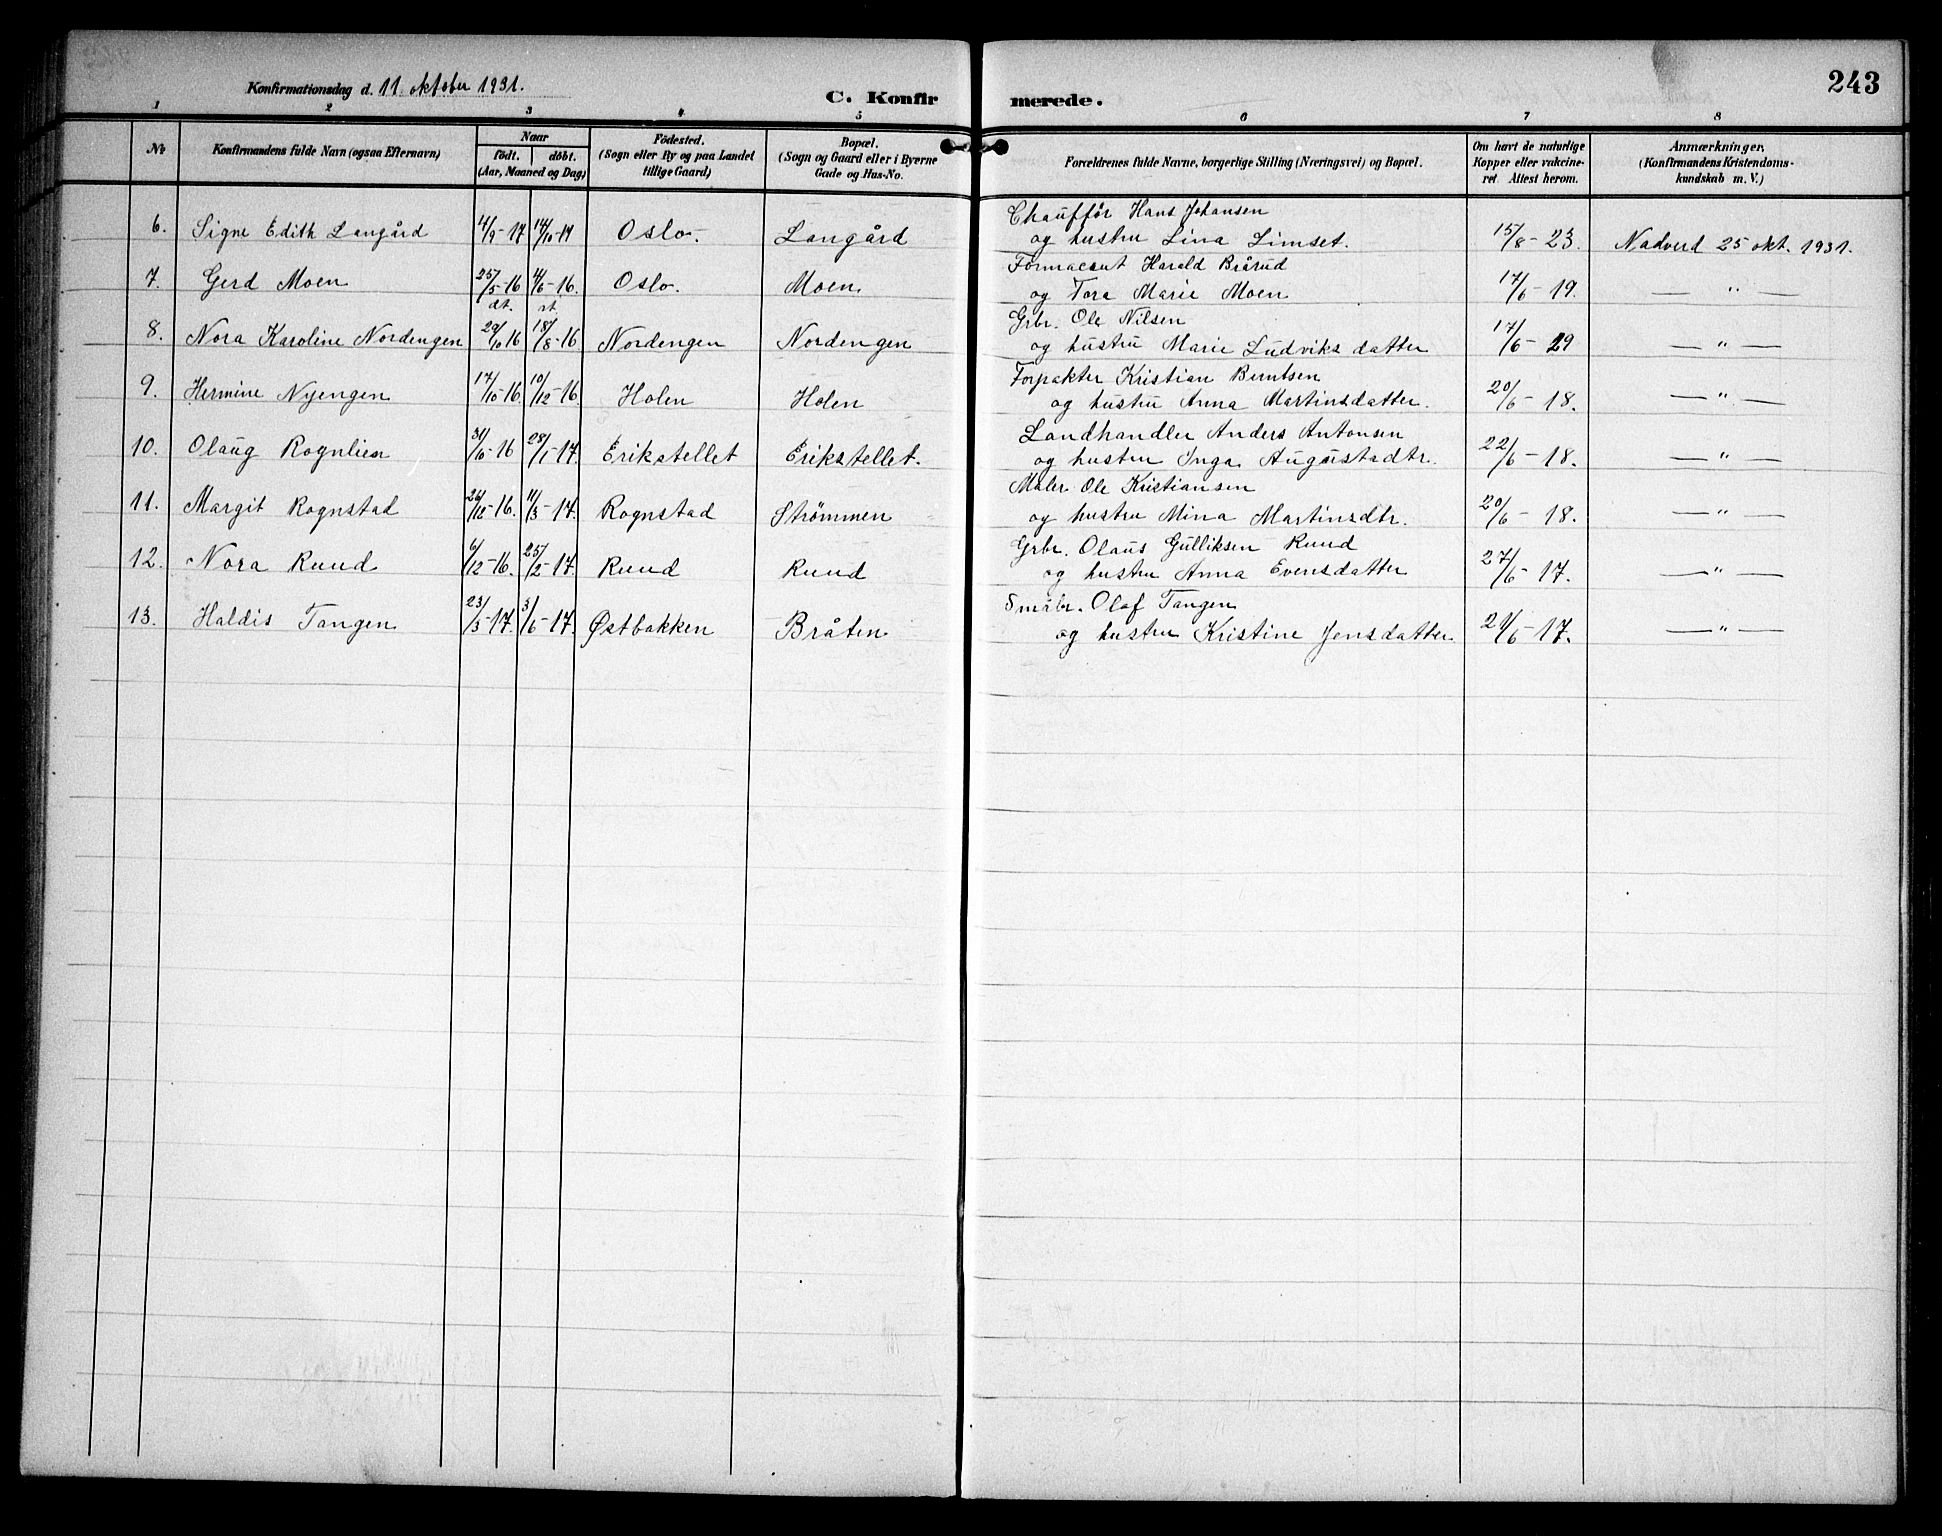 243
Konfirmationsdag d. 11. oktober 1931.
C. Konfirmerede.
1 2 3 4 5 6 7 8
No
Konfirmandens fulde Navn (ogsaa Efternavn)
Naar
födt. döbt.
(Aar, Maaned og Dag)
Födested.
(Sogn eller By og paa Landet
tillige Gaard)
Bopæl.
(Sogn og Gaard eller i Byerne
Gade og Hus-No.
Forældrenes fulde Navne, borgerlige Stilling (Næringsvei) og Bopæl.
Om havt de naturlige
Kopper eller vakcine-
ret Attest herom.
Anmærkninger.
(Konfirmandens Kristendoms-
kundskab m. V.)
Chauffør Hans Johansen
6. Signe Edith Langård 11/9-17 14/10-17 Oslo. Langård og hustru Lina Limset. 15/8-23. Nadverd 25 okt. 1931.
Harald Brårud
7. Gerd Moen 25/5-16 4/6-16. Oslo. Moen og Tora Marie Moen 17/6-19. — " —
dt. st.
Grbr. Ole Nilsen
8. Nora Karoline Nordengen 29/10 16 18/8-16 Nordengen Nordengen og hustru Marie Ludviks datter 17/6-29 — " —
Forpakter Kristian Berntsen
9. Hermine Nyengen 17/10-16. 10/12-16. Holen Holen og hustru Anna Martinsdatter. 20/6-18. — " —
Landhandler Anders Antonsen
10. Olaug Rognlien 31/10-16 28/1-17. Erikstellet Erikstellet. og hustru Inga Augustadtr. 22/6-18. — " —
Maler Ole Kristiansen
11. Margit Rognstad 26/12-16. 11/3-17. Rognstad Strømmen og hustru Mina Martinsdtr. 20/6-18. — " —
Grbr. Olaus Gulliksen Ruud
12. Nora Ruud 6/12-16. 25/2-17. Ruud Ruud og hustru Anna Evensdatter 27/6-17. — " —
Småbr. Olaf Tangen
13. Haldis Tangen 23/3-17. 3/6-17. Østbakken Bråten og hustru Kristine Jensdatter 29/6-17. — " —